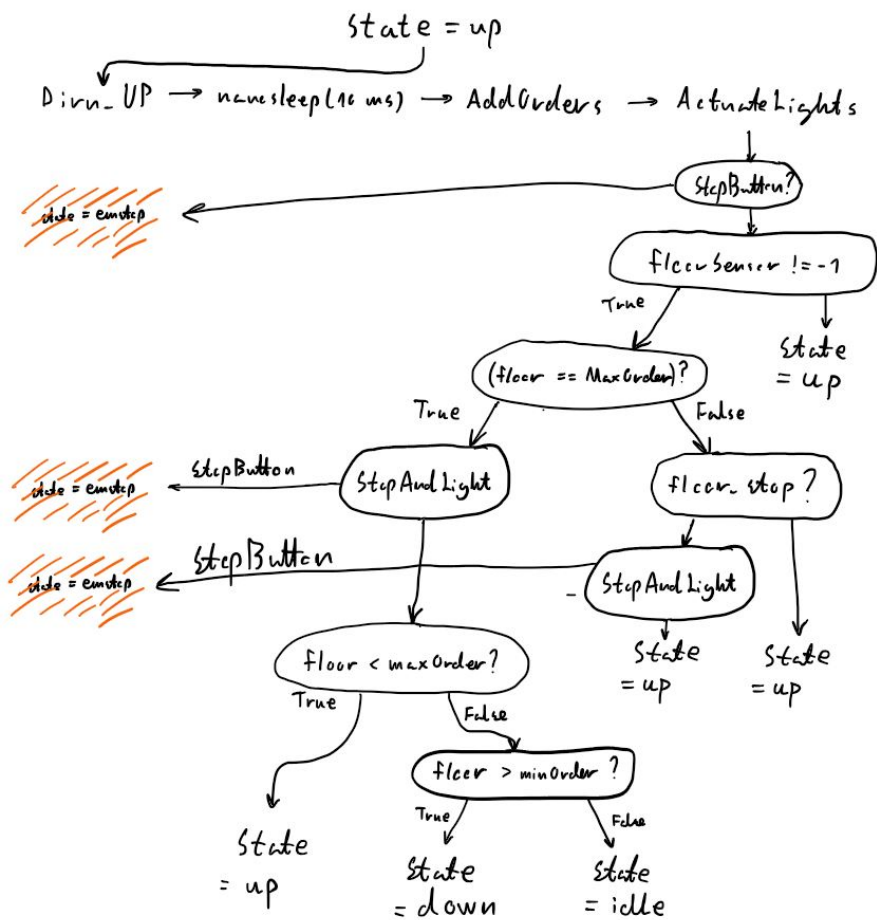 State = up
Dirn_UP → nanosleep(10 ms) → AddOrders → ActuateLights
StopButton?
state = emstop
floorSensor != -1
True
State
= up
(floor == MaxOrder)?
True
False
StopButton
StopAndLight
floor_stop ?
state = emstop
StopButton
StopAndLight
state = emstop
State
= up
State
= up
floor < maxOrder?
True
False
floor > minOrder ?
True
False
State
= up
State
= down
State
= idle